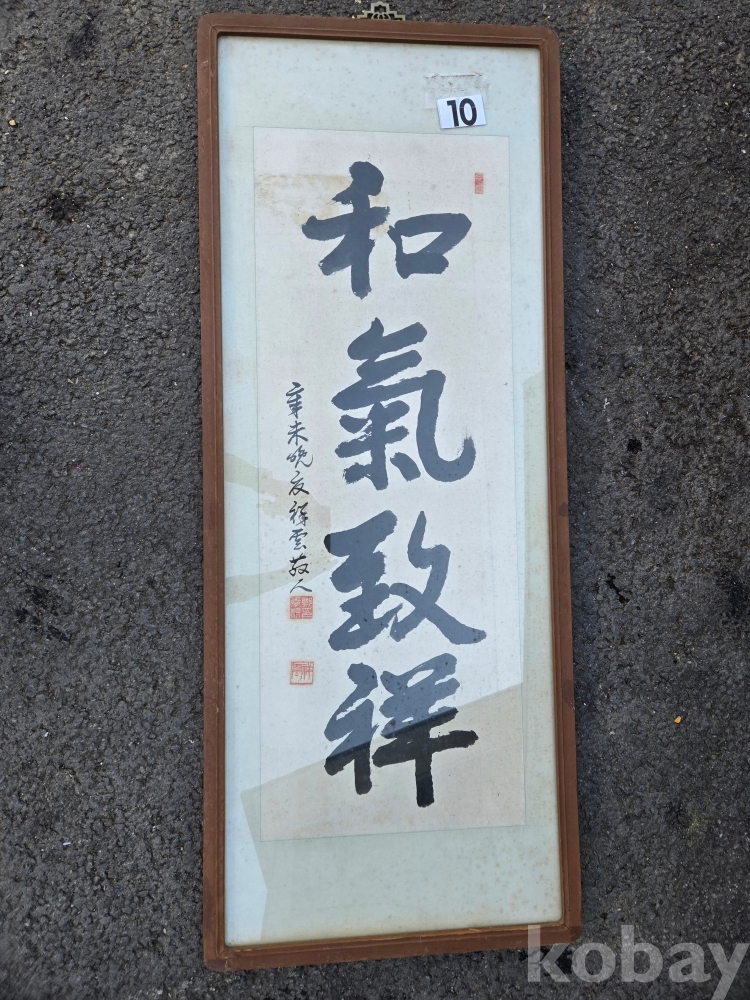 10
和氣致祥
辛未晩夏祥雲散人
kobay